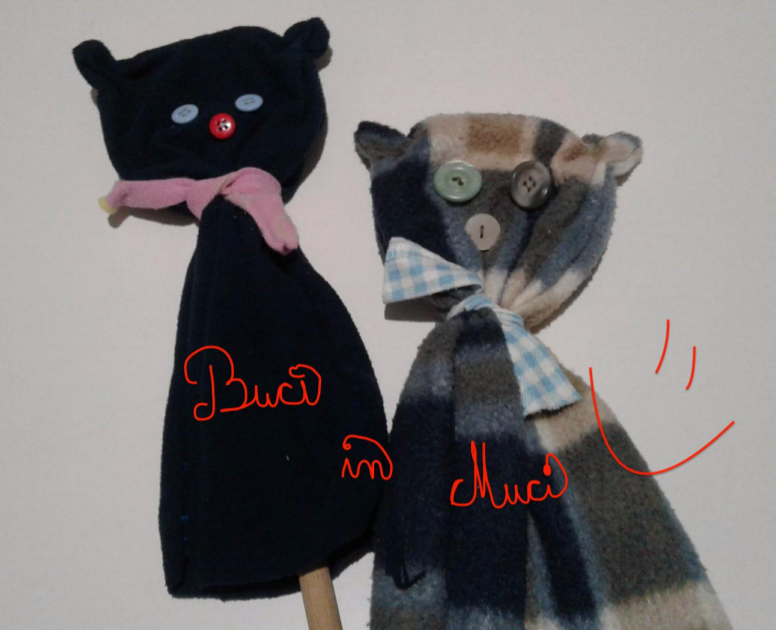 Buci
in
Muci